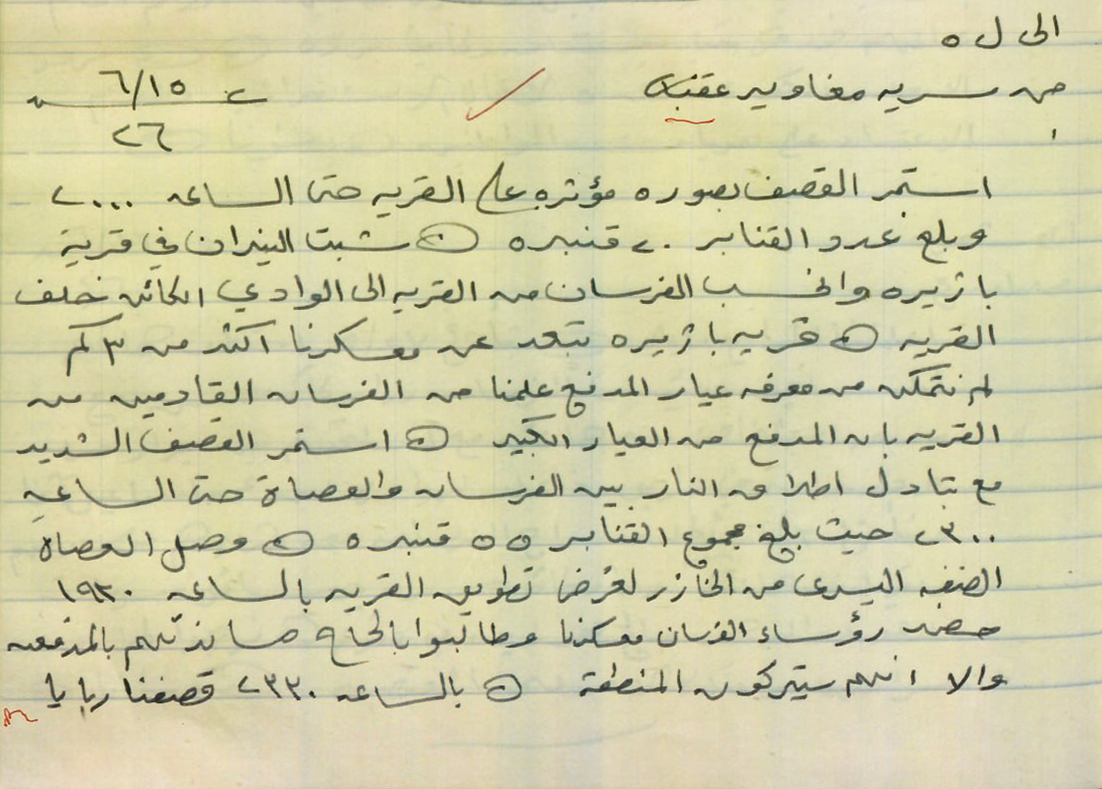 الى ل ٥
من سريه مغاوير عقبة
٦/١٥
٢٦
استمر القصف بصوره مؤثره على القريه حتى الساعه ٢٠٠٠
وبلغ عدد القنابر ٢٠ قنبره ⊙ شبت النيران في قرية
باژيره وانسحب الفرسان من القريه الى الوادي الكائن خلف
القريه ⊙ قريه باژيره تبعد عن معسكرنا اكثر من ٣ كم
لم نتمكن من معرفه عيار المدفع علمنا من الفرسان القادمين من
القريه بان المدفع من العيار الكبير ⊙ استمر القصف الشديد
مع تبادل اطلاق النار بين الفرسان والعصاة حتى الساعه
٢٣٠٠ حيث بلغ مجموع القنابر ٥٥ قنبره ⊙ وصل العصاة
الضفه اليسرى من الخازر لغرض تطويق القريه بالساعه ١٩٣٠
حضر رؤساء الفرسان معسكرنا وطالبوا بالحاح مساندتهم بالمدفعيه
والا انهم سيتركون المنطقة ⊙ بالساعه ٢٣٣٠ قصفنا ربايا